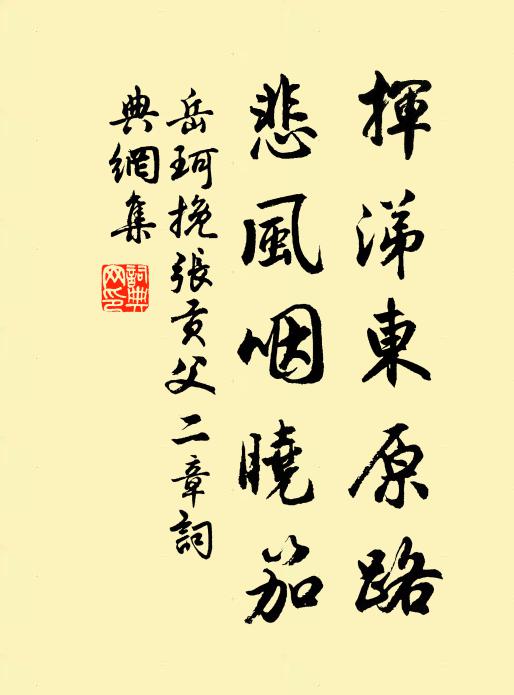 揮涕東原路
悲風咽曉笳
岳珂挽張貢父二章詞
典網集
詞典
网印